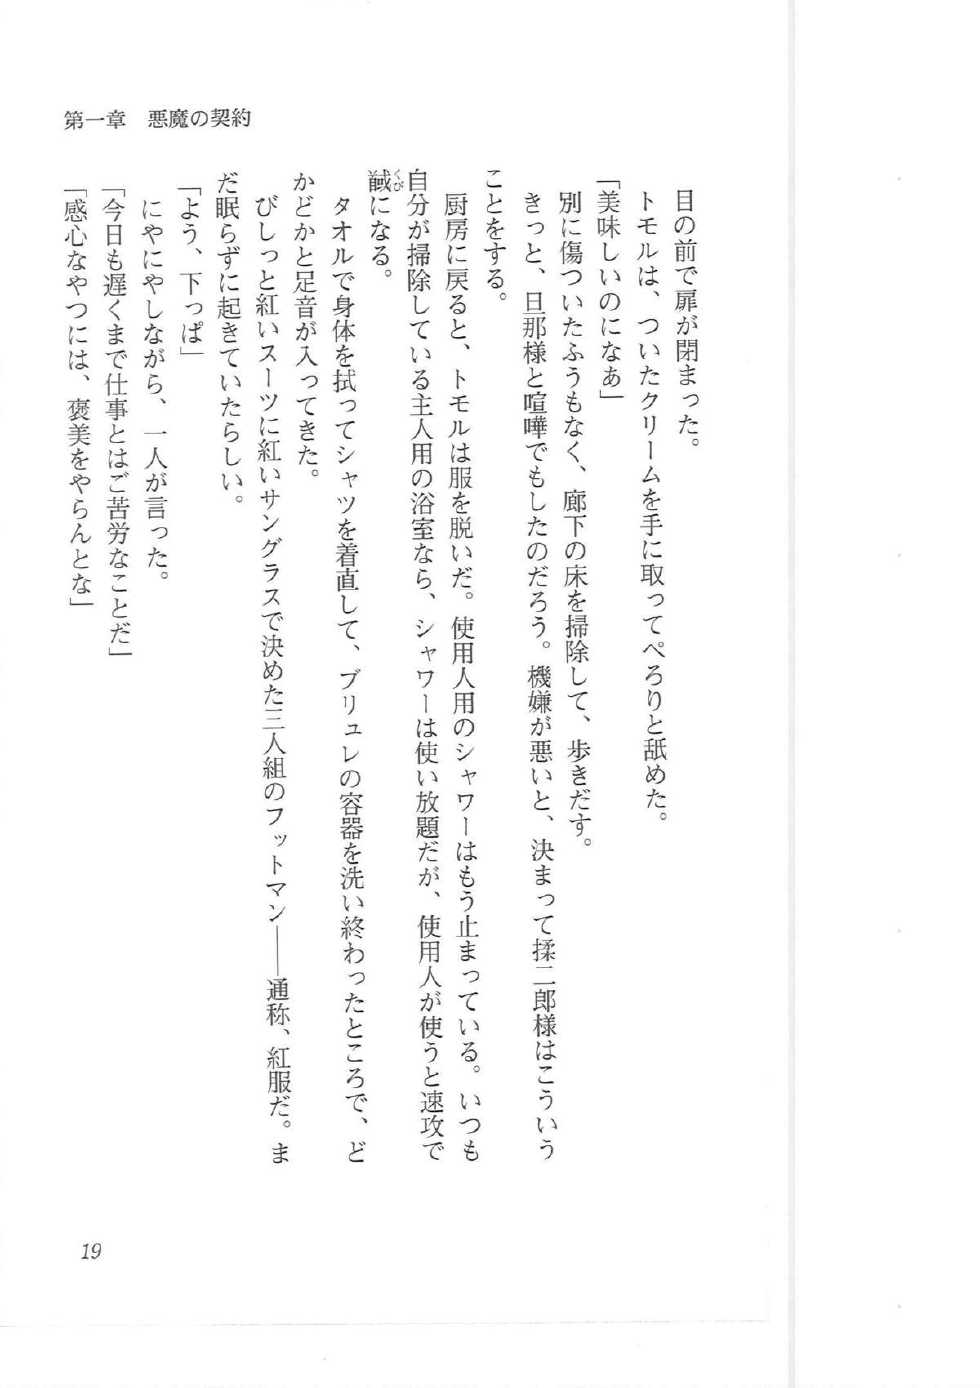 第一章　悪魔の契約
目の前で扉が閉まった。
トモルは、ついたクリームを手に取ってぺろりと舐めた。
「美味しいのになぁ」
別に傷ついたふうもなく、廊下の床を掃除して、歩きだす。
きっと、旦那様と喧嘩でもしたのだろう。機嫌が悪いと、決まって揉二郎様はこういう
ことをする。
厨房に戻ると、トモルは服を脱いだ。使用人用のシャワーはもう止まっている。いつも
自分が掃除している主人用の浴室なら、シャワーは使い放題だが、使用人が使うと速攻で
馘くびになる。
タオルで身体を拭ってシャツを着直して、ブリュレの容器を洗い終わったところで、ど
かどかと足音が入ってきた。
びしっと紅いスーツに紅いサングラスで決めた三人組のフットマン――通称、紅服だ。ま
だ眠らずに起きていたらしい。
「よう、下っぱ」
にやにやしながら、一人が言った。
「今日も遅くまで仕事とはご苦労なことだ」
「感心なやつには、褒美をやらんとな」
19